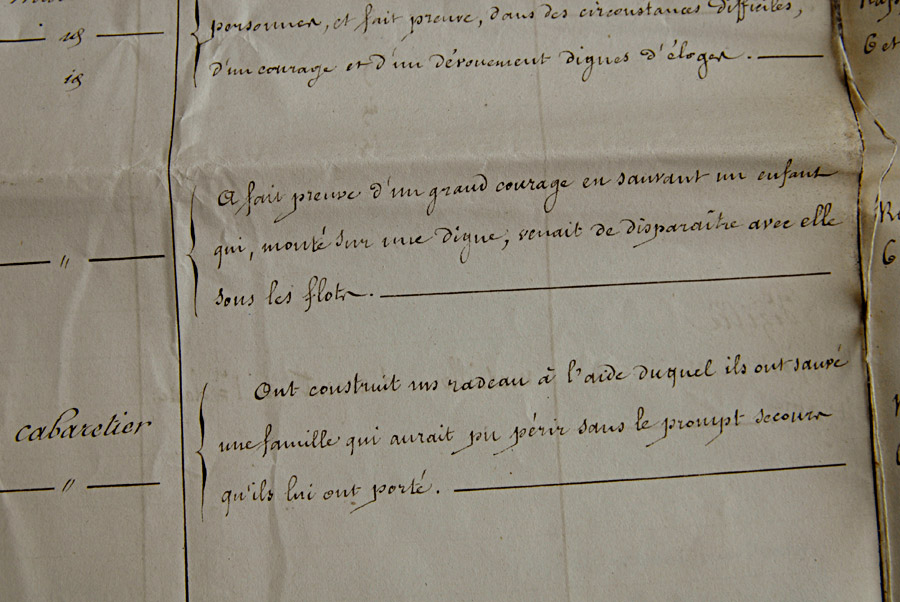 personnes, et fait preuve, dans des circonstances difficiles,
id
d'un courage et d'un dévouement dignes d'éloges.
id
A fait preuve d'un grand courage en sauvant un enfant
qui, monté sur une digue, venait de disparaître avec elle
"
sous les flots.
Ont construit un radeau à l'aide duquel ils ont sauvé
cabaretier
une famille qui aurait pu périr sans le prompt secours
"
qu'ils lui ont porté.
6 et
6